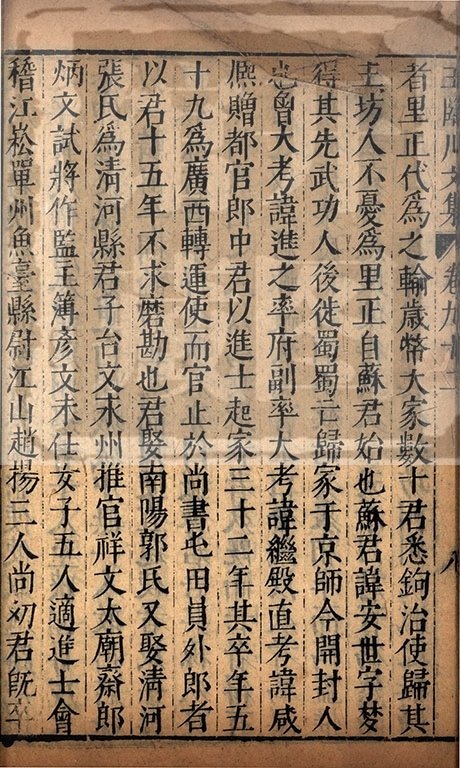 王臨川文集 卷九十二 八
者里正代爲之輸歲幣大家數十君悉鉤治使歸其
主坊人不憂爲里正自蘇君始也蘇君諱安世字夢
得其先武功人後徙蜀蜀亡歸家于京師今開封人
也曾大考諱進之率府副率大考諱繼殿直考諱咸
熈贈都官郎中君以進士起家三十二年其卒年五
十九爲廣西轉運使而官止於尚書屯田員外郎者
以君十五年不求磨勘也君娶南陽郭氏又娶清河
張氏爲清河縣君子台文永州推官祥文太廟齋郎
炳文試將作監主簿彥文未仕女子五人適進士會
稽江崧單州魚臺縣尉江山趙揚三人尚初君旣卒